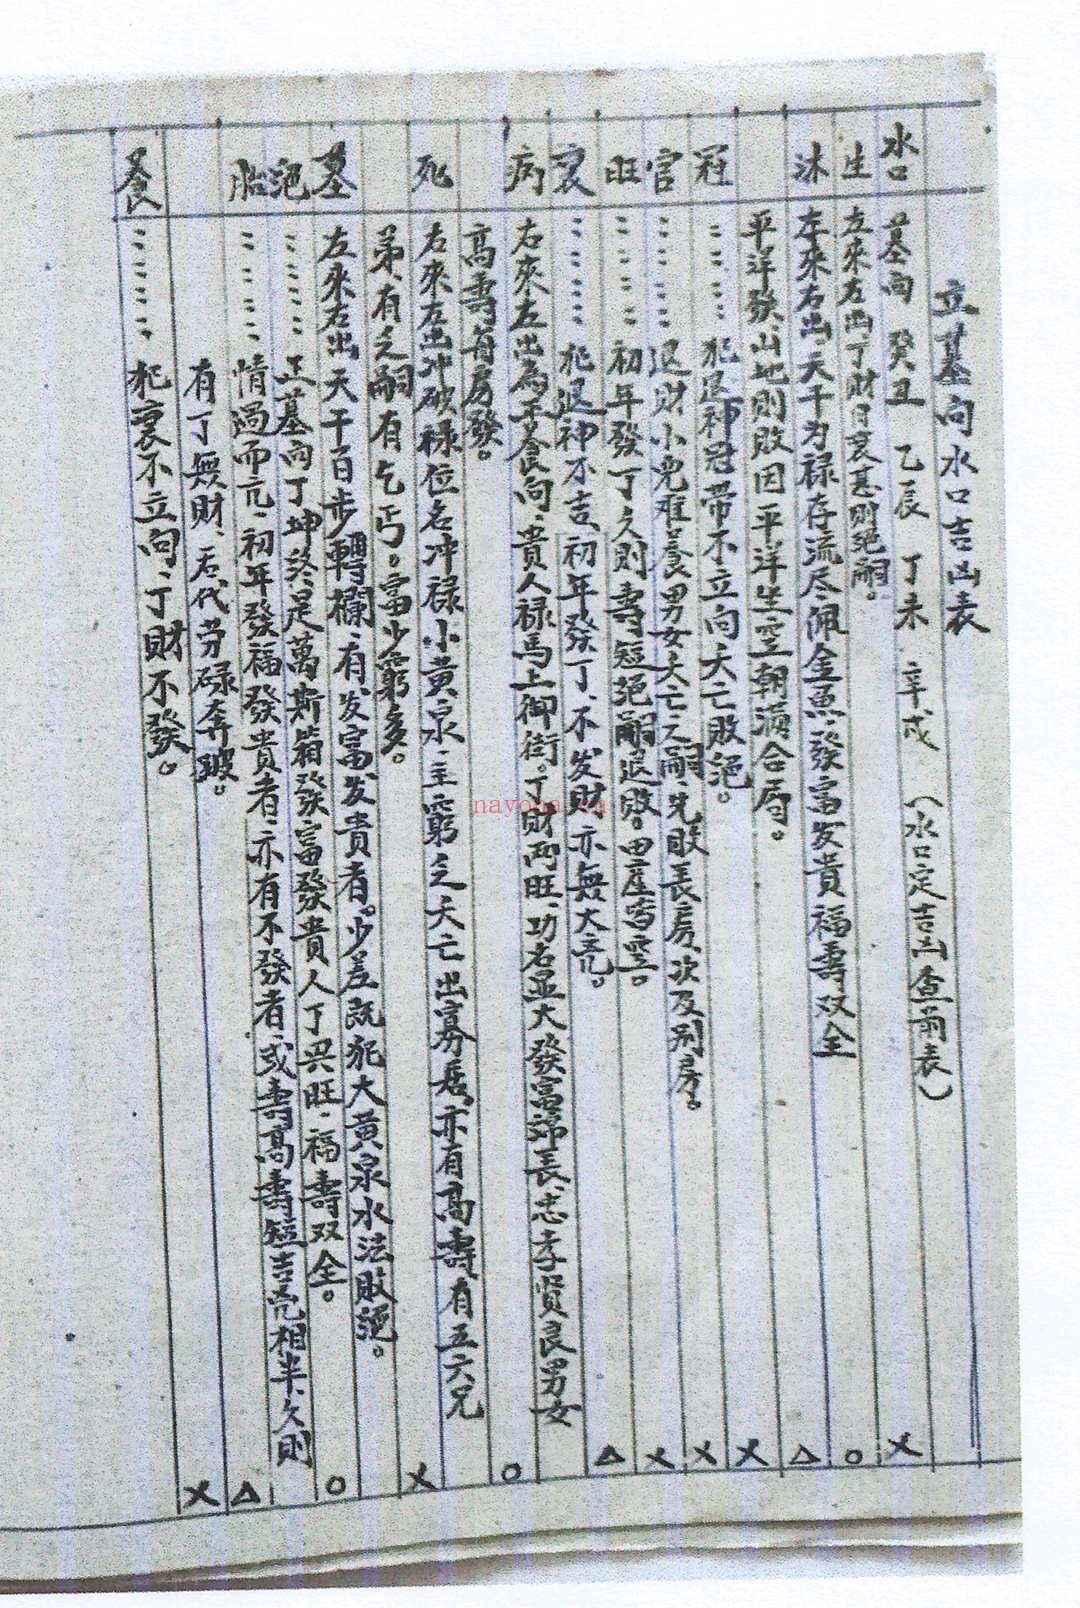 立墓向水口吉凶表
水口 墓向 癸丑 乙辰 丁未 辛戌 (水口定吉凶查前表)
生 左來右出,丁財日衰甚則绝嗣。 X
沐 左來右出,天干为禄存流尽佩金魚,發富发貴福壽双全 O
平洋發,山地則敗因平洋坐空朝满合局。 △
冠 〃〃〃〃 犯退神冠带不立向夭亡敗绝。 X
官 〃〃〃〃 退財小兒难養男女夭亡乏嗣先敗長房,次及别房。 X
旺 〃〃〃〃 初年發丁久則壽短绝嗣退敗。田産雪雲。 X
衰 〃〃〃〃 犯退神不吉,初年發丁、不发財亦無大凶。 △
病 右來左出為正養向、貴人禄馬上御街。丁財两旺,功名显大發富綿長、忠孝贤良男女
高壽每房發。 O
死 右來左出冲破禄位名冲禄小黄泉、主窮乏夭亡出寡居,亦有高壽有五六兄
弟,有乏嗣有乞丐。富少窮多。 X
墓 左來右出天干百步轉欄,有发富发貴者。少差既犯大黄泉水法敗绝。
绝 〃〃〃〃 正墓向丁坤终是萬斯箱發富發貴人丁兴旺、福壽双全。 O
胎 〃〃〃〃 情過而亢、初年發福發貴者,亦有不發者,或壽高壽短吉凶相半、久則
有丁無財、后代劳碌奔波。 △
養 〃〃〃〃 犯衰不立向、丁財不發。 X
nayona.cn